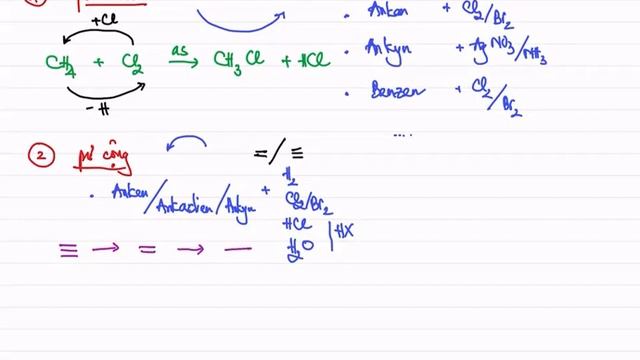 ①
+Cl
CH₄ + Cl₂ as→ CH₃Cl + HCl
-H
. Ankan + Cl₂/Br₂
. Ankyn + AgNO₃/NH₃
. Benzen + Cl₂/Br₂
....
② pư cộng
= / ≡
. Anken/Ankadien/Ankyn + H₂
Cl₂/Br₂
HCl
H₂O | HX
≡ → = → —